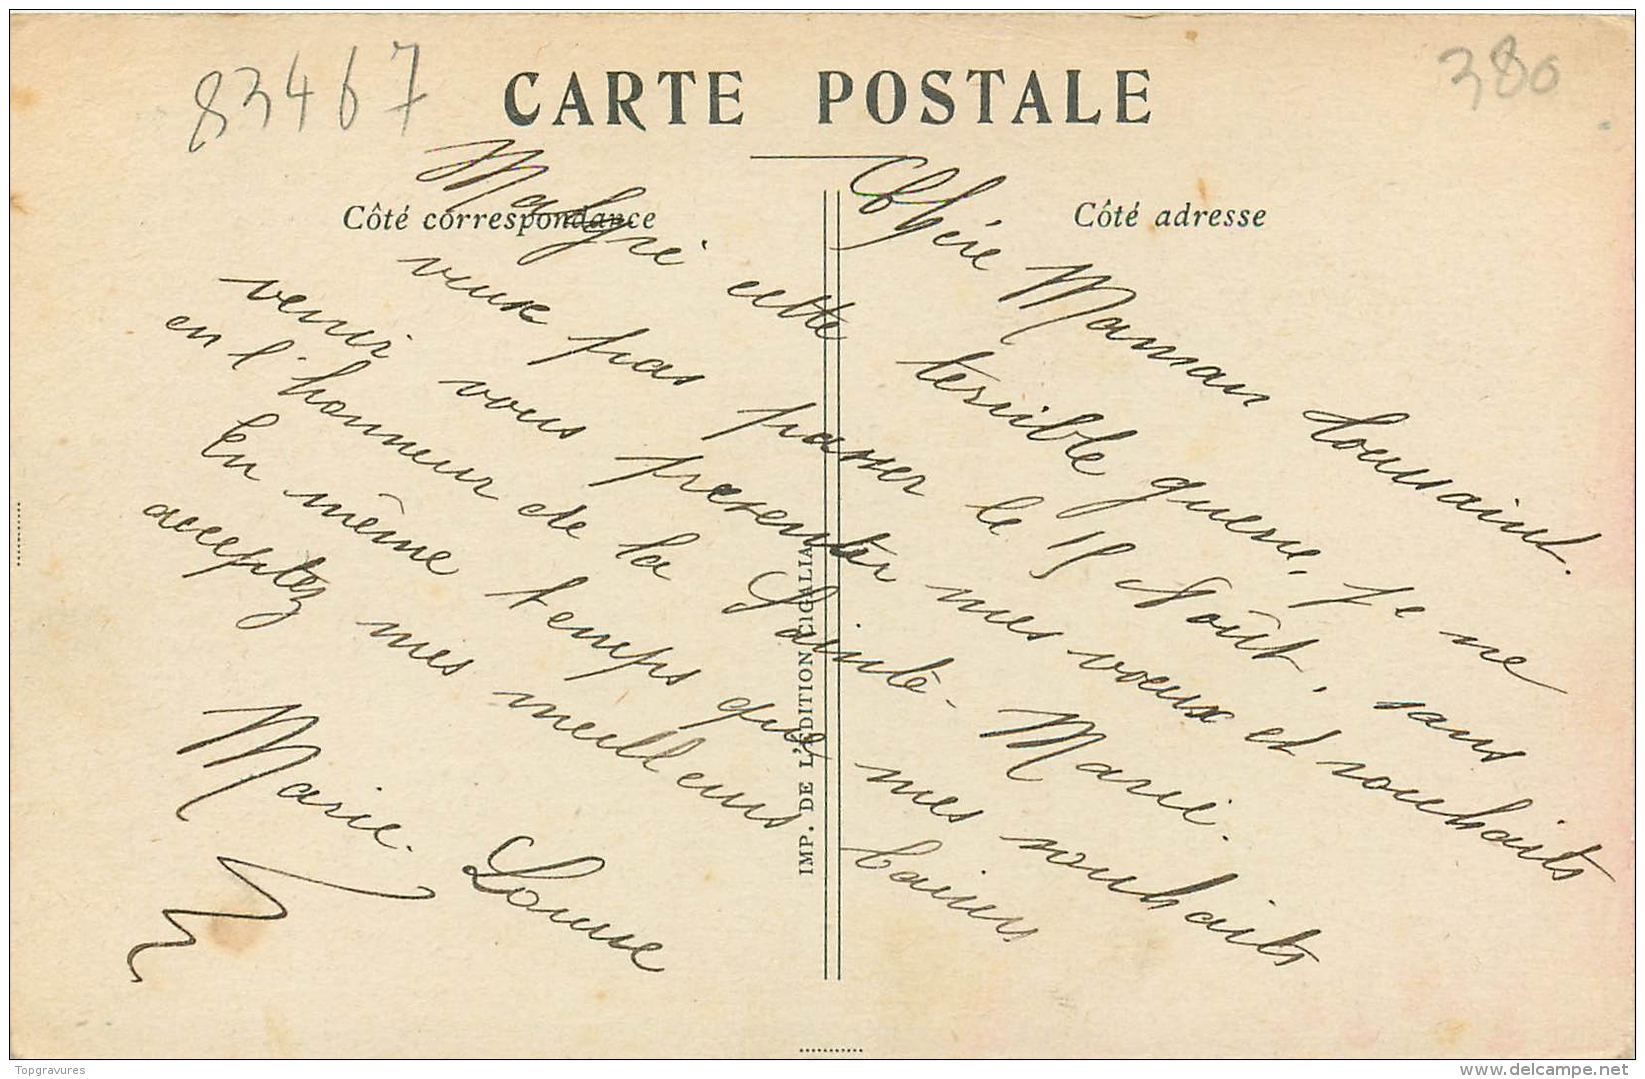 83467
380
CARTE POSTALE
Côté correspondance
Côté adresse
Chère Maman Toussaint.
Malgré cette terrible guerre, je ne
veux pas passer le 15 Août, sans
venir vous presenter mes voeux et souhaits
en l'honneur de la Sainte-Marie.
En même temps que mes souhaits
acceptez mes meilleurs baisers
Marie. Louise
IMP. DE L'ÉDITION CIGALIA
Topgravures
delcampe.net